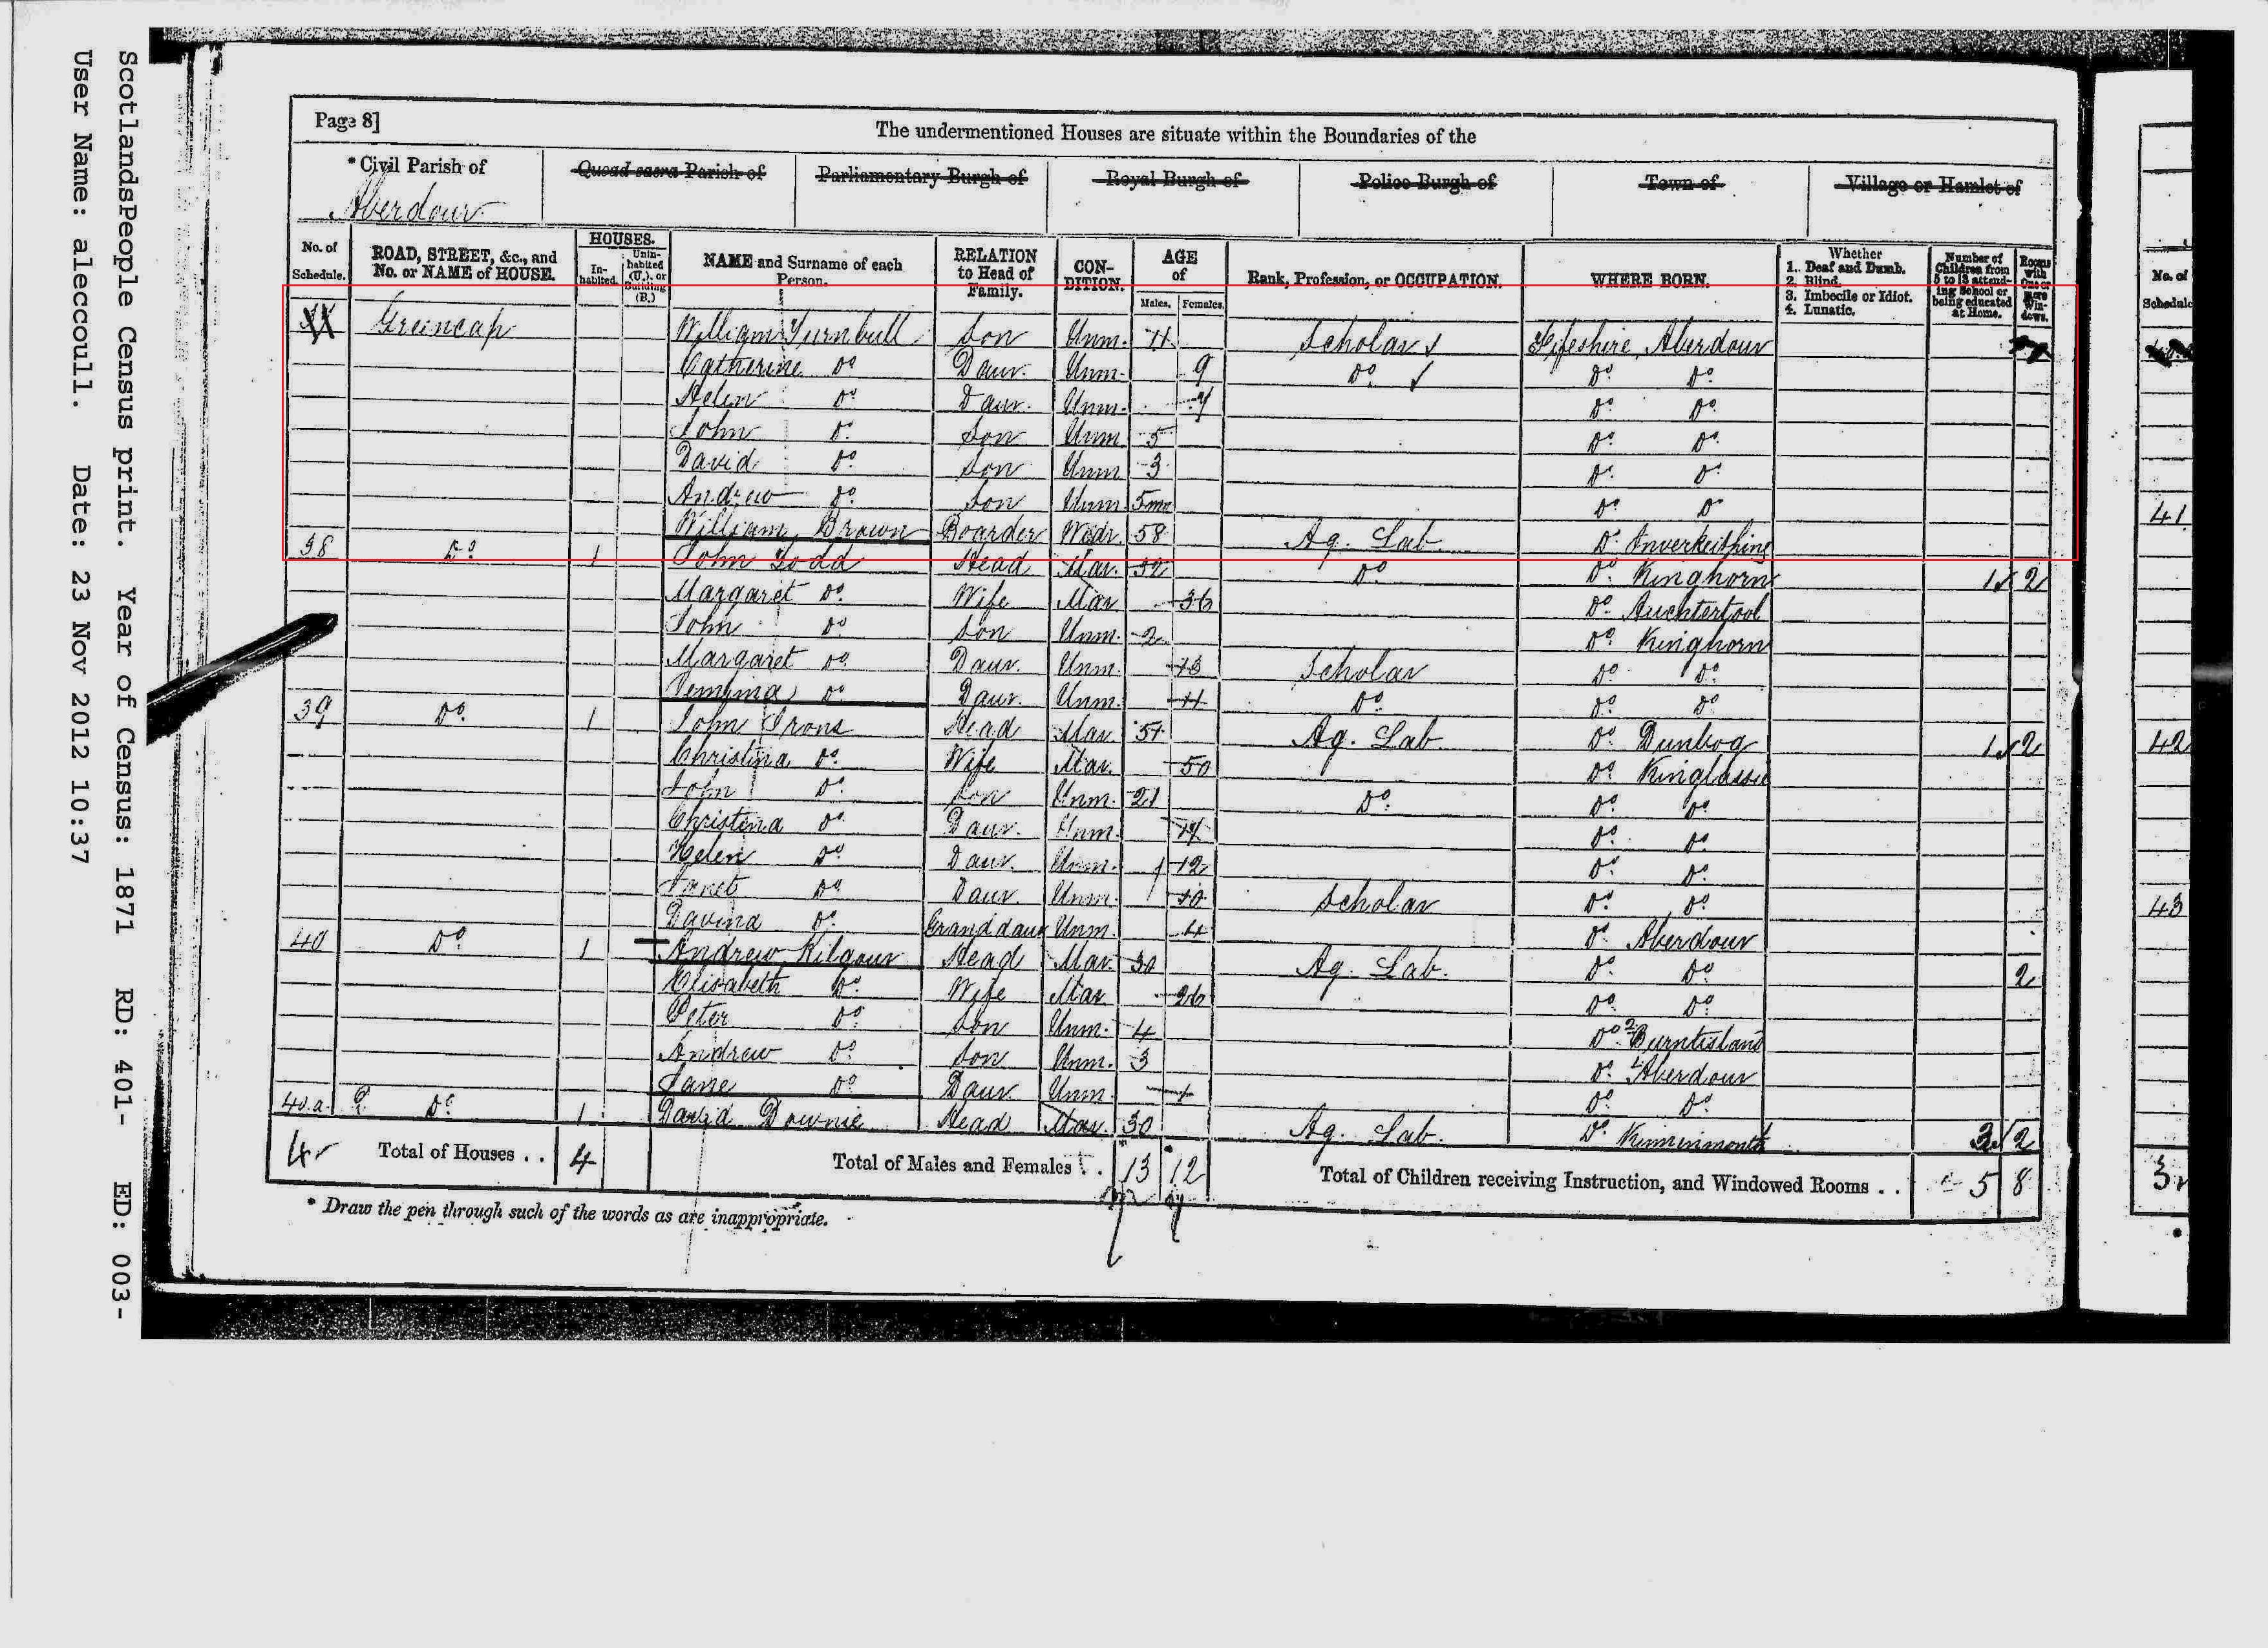 ScotlandsPeople Census print. Year of Census: 1871 RD: 401- ED: 003-
User Name: aleccoull. Date: 23 Nov 2012 10:37
Page 8]
The undermentioned Houses are situate within the Boundaries of the
* Civil Parish of Quoad sacra Parish of Parliamentary Burgh of Royal Burgh of Police Burgh of Town of Village or Hamlet of
Aberdour
No. of Schedule. ROAD, STREET, &c., and No. or NAME of HOUSE. HOUSES. Inhabited. Uninhabited (U.), or Building (B.) NAME and Surname of each Person. RELATION to Head of Family. CONDITION. AGE of Males. Females. Rank, Profession, or OCCUPATION. WHERE BORN. Whether 1. Deaf and Dumb. 2. Blind. 3. Imbecile or Idiot. 4. Lunatic. Number of Children from 5 to 13 attending School or being educated at Home. Rooms with One or more Windows.
William Turnbull Son Unm. 11 Scholar Fifeshire, Aberdour
Catherine Do Daur. Unm. 9 Do Do Do
Helen Do Daur. Unm. 7 Do Do
John Do Son Unm 5 Do Do
David Do Son Unm 3 Do Do
Andrew Do Son Unm 5mo Do Do
William Brown Boarder Widr. 58 Ag. Lab. Do Inverkeithing
38 Do 1 John Todd Head Mar. 32 Do Do Kinghorn 1 2
Margaret Do Wife Mar 36 Do Auchtertool
John Do Son Unm. 2 Do Kinghorn
Margaret Do Daur. Unm. 13 Scholar Do Do
Jemima Do Daur. Unm. 11 Do Do Do
39 Do 1 John Irons Head Mar. 51 Ag. Lab. Do Dunbog 1 2
Christina Do Wife Mar. 50 Do Kinglassie
John Do Son Unm. 21 Do Do Do
Christina Do Daur. Unm. Do Do
Helen Do Daur. Unm. 12 Do Do
Janet Do Daur. Unm. 10 Scholar Do Do
Davina Do Grand daur Unm. 4 Do Aberdour
40 Do 1 Andrew Kilgour Head Mar. 30 Ag. Lab. Do Do 2
Elisabeth Do Wife Mar 26 Do Do
Peter Do Son Unm. 4 Do Burntisland
Andrew Do Son Unm. 3 Do Aberdour
Jane Do Daur. Unm. 1 Do Do
40a Do 1 David Downie Head Mar. 30 Ag. Lab. Do 3 2
4 Total of Houses . . 4 Total of Males and Females . . 13 12 Total of Children receiving Instruction, and Windowed Rooms . . 5 8
* Draw the pen through such of the words as are inappropriate.
No. of Schedule
41
42
43
3